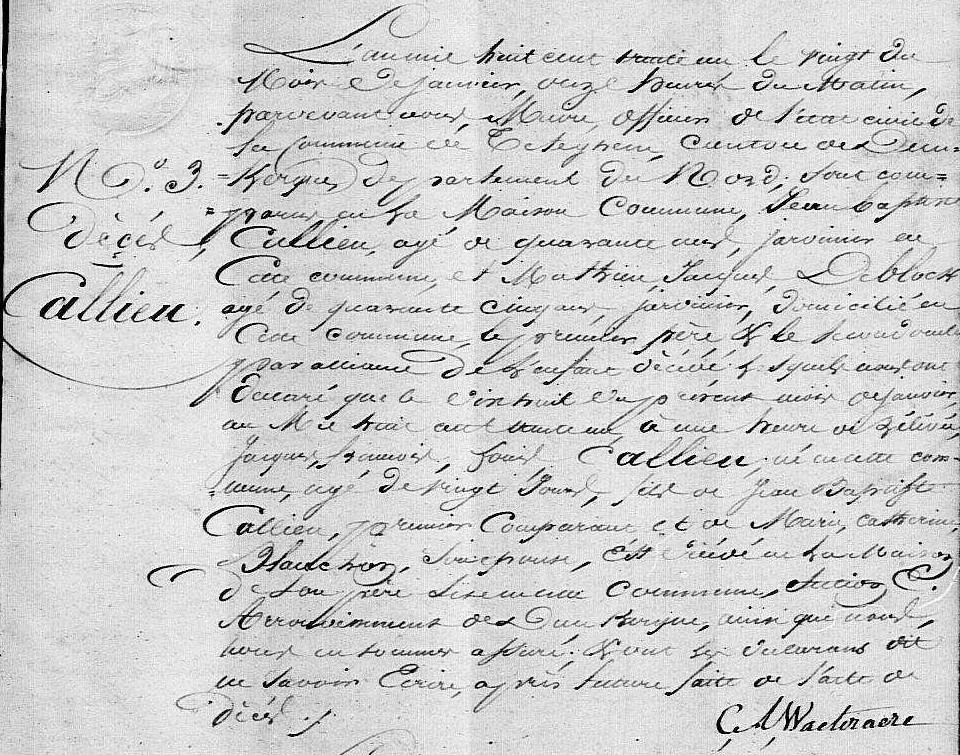 L'an mil huit cent trente un le vingt du
Mois de janvier, onze heures du Matin,
pardevant nous, Maire, officier de l'état civil de
la Commune de Teteghem, Canton des Dun=
N.º 3. =kerque, département du Nord, sont com=
=parus en la Maison Commune, Jean Baptiste
Décès, Callieu, agé de quarante ans, jardinier en
Cette commune, et Mathieu Jacques Deblock
Callieu. agé de quarante cinq ans, jardinier, domicilié en
Cette commune, le premier père & le second oncle
par alliance de l'enfant décédé, lesquels nous ont
déclaré que le dix huit du présent mois de janvier,
an Mil huit cent trente un, à une heure de rélévée,
Jacques, françois, Louis Callieu, né en cette com=
=mune, agé de vingt Jours, fils de Jean Baptiste
Callieu, premier Comparant et de Marie, Catherine,
Blanchion, son épouse, Est décédé en la Maison
de son père sise en cette Commune, Section C.
Arrondissement de Dunkerque, ainsi que nous,
nous en sommes assuré; & ont les déclarans dit
ne Savoir Ecrire, après lecture faite de l'acte de
décès ./.
C, A, Waeteraere